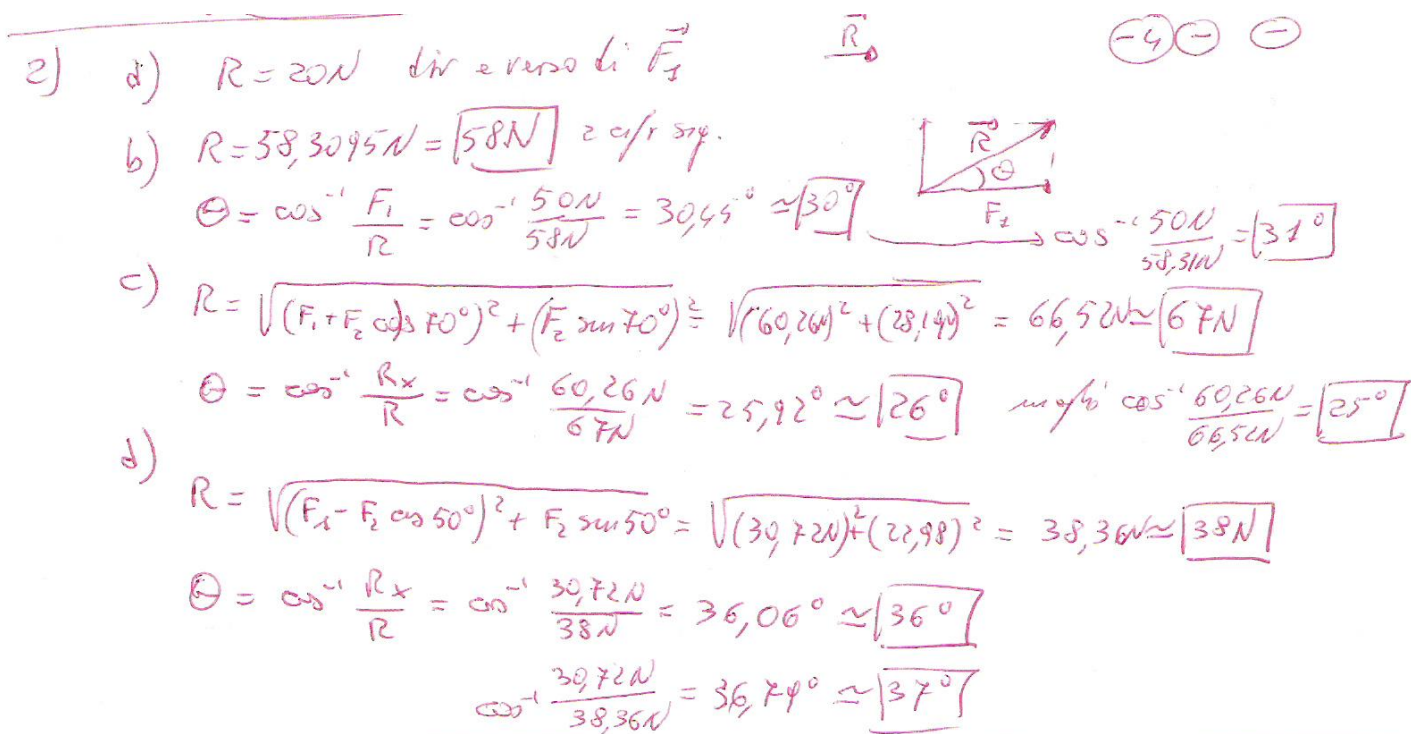 2) a) R = 20N dir e verso di F⃗₁ R⃗ -4 - -
b) R = 58,3095N = 58N 2 cifr sig.
R⃗ θ F₁
θ = cos⁻¹ F₁/R = cos⁻¹ 50N/58N = 30,45° ≃ 30° → cos⁻¹ 50N/58,31N = 31°
c) R = √((F₁+F₂ cos 70°)² + (F₂ sen 70°)²) = √((60,26N)² + (28,19N)²) = 66,52N ≃ 67N
θ = cos⁻¹ Rx/R = cos⁻¹ 60,26N/67N = 25,92° ≃ 26° meglio cos⁻¹ 60,26N/66,52N = 25°
d) R = √((F₁ - F₂ cos 50°)² + F₂ sen 50°) = √((30,72N)² + (22,98)²) = 38,36N ≃ 38N
θ = cos⁻¹ Rx/R = cos⁻¹ 30,72N/38N = 36,06° ≃ 36°
cos⁻¹ 30,72N/38,36N = 36,79° ≃ 37°